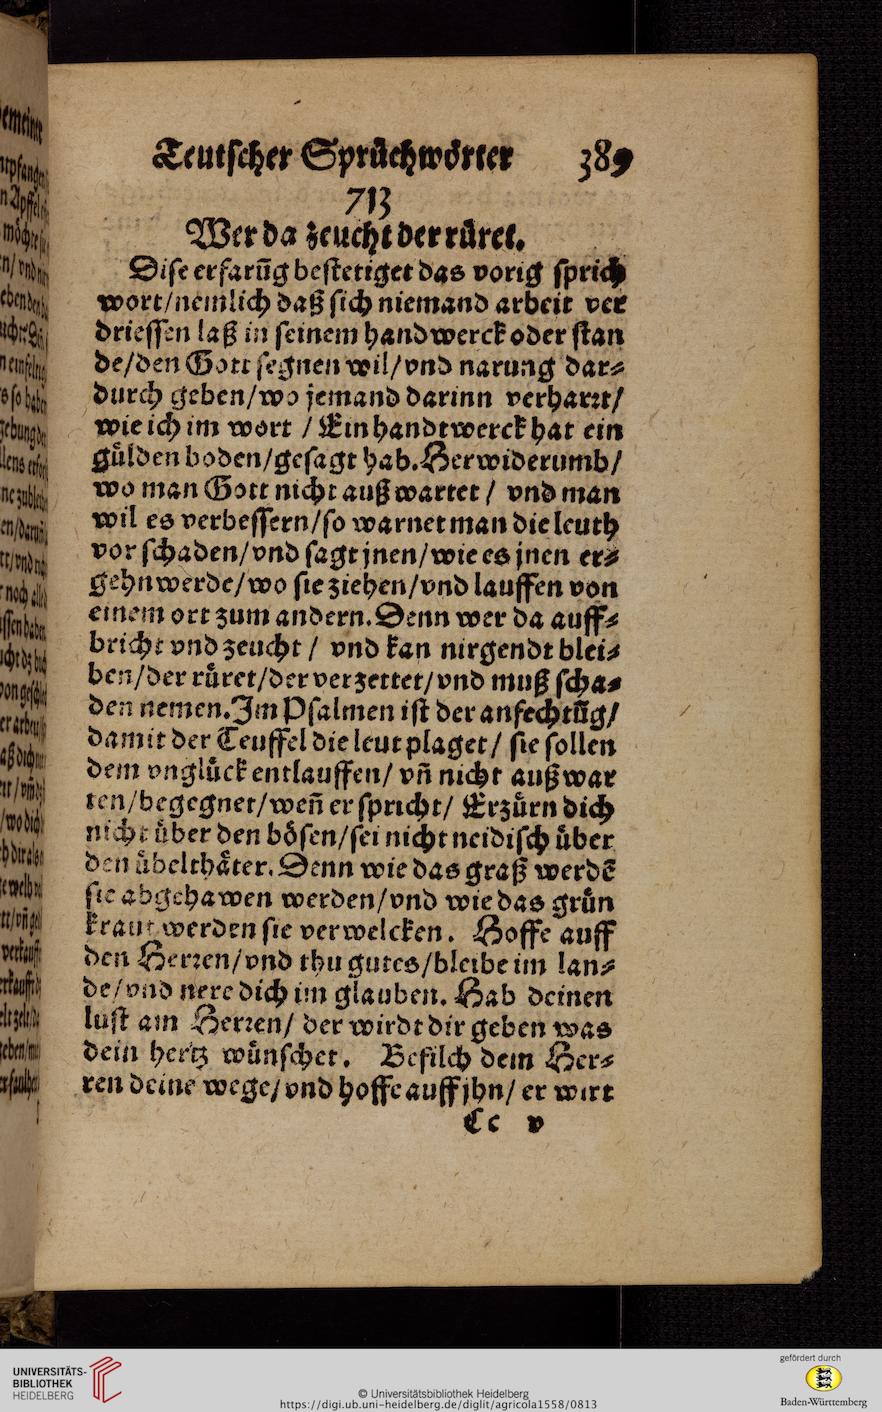 Teutscher Sprüchwörter 389
713
Wer da zeucht der rüret.
Dise erfarūg bestetiget das vorig sprich
wort/nemlich daß sich niemand arbeit ver
driessen laß in seinem handwerck oder stan
de/den Gott segnen wil/vnd narung dar⸗
durch geben/wo jemand darinn verharꝛt/
wie ich im wort / Ein handtwerck hat ein
gülden boden/gesagt hab. Herwiderumb/
wo man Gott nicht auß wartet / vnd man
wil es verbessern/so warnet man die leuth
vor schaden/vnd sagt jnen/wie es jnen er⸗
gehn werde/wo sie ziehen/vnd lauffen von
einem ort zum andern. Denn wer da auff⸗
bricht vnd zeucht / vnd kan nirgendt blei⸗
ben/der rüret/der verzettet/vnd muß scha⸗
den nemen. Im Psalmen ist der anfechtūg/
damit der Teuffel die leut plaget/ sie sollen
dem vnglück entlauffen/ vn̄ nicht auß war
ten/begegnet/wen̄ er spricht/ Erzürn dich
nicht über den bösen/sei nicht neidisch über
den übelthäter. Denn wie das graß werdē
sie abgehawen werden/vnd wie das grün
kraut werden sie verwelcken. Hoffe auff
den Herꝛen/vnd thu gutes/bleibe im lan⸗
de/vnd nere dich im glauben. Hab deinen
lust am Herꝛen/ der wirdt dir geben was
dein hertz wünschet. Befilch dem Her⸗
ren deine wege/vnd hoffe auff jhn/ er wirt
Cc v
UNIVERSITÄTS-
BIBLIOTHEK
HEIDELBERG
© Universitätsbibliothek Heidelberg
https://digi.ub.uni-heidelberg.de/diglit/agricola1558/0813
gefördert durch
Baden-Württemberg